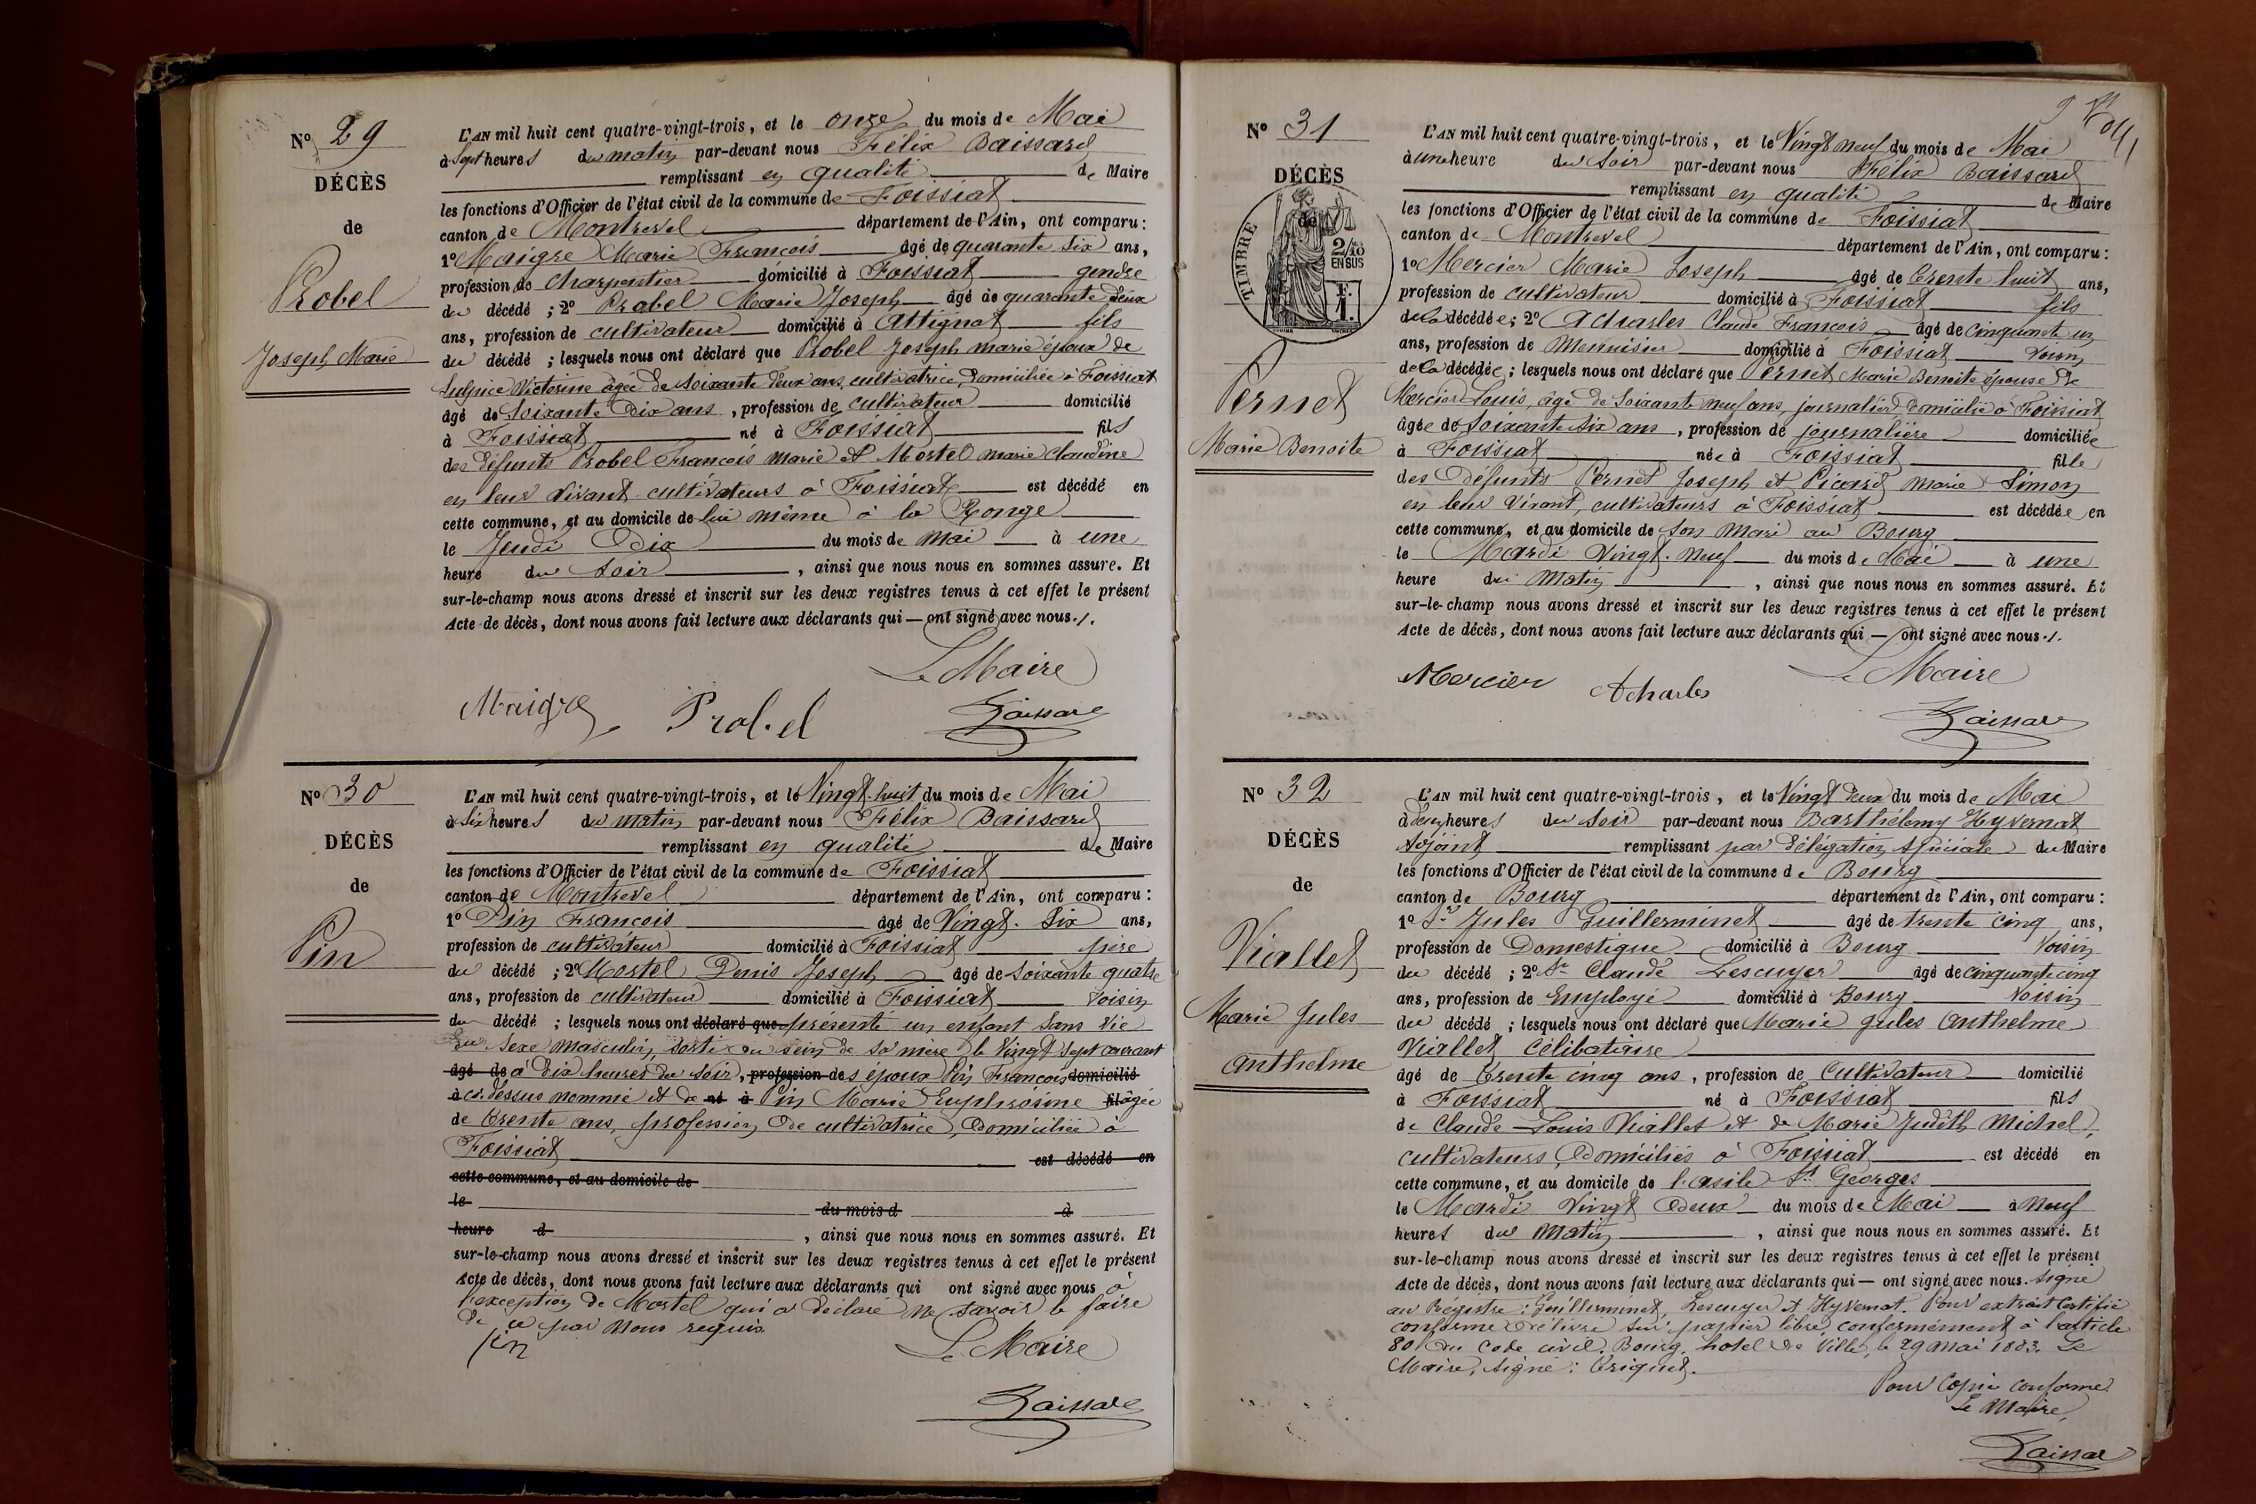 N° 29
DÉCÈS
de
Probel
Joseph Marie
L'AN mil huit cent quatre-vingt-trois, et le onze du mois de Mai
à sept heures du matin par-devant nous Félix Baissard
remplissant en qualité de Maire
les fonctions d'Officier de l'état civil de la commune de Foissiat
canton de Montrevel département de l'Ain, ont comparu :
1° Maigre Marie François âgé de quarante six ans,
profession de charpentier domicilié à Foissiat gendre
du décédé ; 2° Probel Marie Joseph âgé de quarante deux
ans, profession de cultivateur domicilié à Attignat fils
du décédé ; lesquels nous ont déclaré que Probel Joseph marie époux de
Sulpice Victorine âgée de soixante deux ans, cultivatrice, domiciliée à Foissiat
âgé de soixante dix ans, profession de cultivateur domicilié
à Foissiat né à Foissiat fils
des défunts Probel François marie et Mostel marie claudine
en leur vivant cultivateurs à Foissiat est décédé en
cette commune, et au domicile de lui même à la Ronge
le Jeudi Dix du mois de Mai à une
heure du soir, ainsi que nous nous en sommes assuré. Et
sur-le-champ nous avons dressé et inscrit sur les deux registres tenus à cet effet le présent
Acte de décès, dont nous avons fait lecture aux déclarants qui — ont signé avec nous ./.
Le Maire
Maigre Probel Baissard
N° 30
DÉCÈS
de
Pin
L'AN mil huit cent quatre-vingt-trois, et le Vingt-huit du mois de Mai
à six heures du matin par-devant nous Félix Baissard
remplissant en qualité de Maire
les fonctions d'Officier de l'état civil de la commune de Foissiat
canton de Montrevel département de l'Ain, ont comparu :
1° Pin François âgé de Vingt-six ans,
profession de cultivateur domicilié à Foissiat père
du décédé ; 2° Mostel Denis Joseph âgé de soixante quatre
ans, profession de cultivateur domicilié à Foissiat voisin
du décédé ; lesquels nous ont déclaré que présenté un enfant sans vie
du sexe masculin, sorti du sein de sa mère le Vingt sept courant
âgé de à dix heures du soir, profession des époux Pin François domicilié
à ci-dessus nommé et de né à Pin Marie Euphrosine fil âgée
de trente ans, profession de cultivatrice, domiciliée à
Foissiat est décédé en
cette commune, et au domicile de
le du mois d à
heure d , ainsi que nous nous en sommes assuré. Et
sur-le-champ nous avons dressé et inscrit sur les deux registres tenus à cet effet le présent
Acte de décès, dont nous avons fait lecture aux déclarants qui ont signé avec nous à
l'exception de Mostel qui a déclaré ne savoir le faire
de ce par nous requis.
Pin Le Maire
Baissard
N° 31
DÉCÈS
de
TIMBRE
2/10
EN SUS
Pernet
Marie Benoite
L'AN mil huit cent quatre-vingt-trois, et le Vingt neuf du mois de Mai
à une heure du soir par-devant nous Félix Baissard
remplissant en qualité de Maire
les fonctions d'Officier de l'état civil de la commune de Foissiat
canton de Montrevel département de l'Ain, ont comparu :
1° Mercier Marie Joseph âgé de trente huit ans,
profession de cultivateur domicilié à Foissiat fils
de la décédée ; 2° Acharles Claude François âgé de cinquante un
ans, profession de Menuisier domicilié à Foissiat voisin
de la décédée ; lesquels nous ont déclaré que Pernet Marie Benoite épouse de
Mercier Louis, âgé de soixante neuf ans, journalier domicilié à Foissiat
âgée de soixante six ans, profession de journalière domiciliée
à Foissiat née à Foissiat fille
des défunts Pernet Joseph et Picard marie Simon
en leur vivant, cultivateurs à Foissiat est décédée en
cette commune, et au domicile de son mari au Bourg
le Mardi Vingt-neuf du mois de Mai à une
heure du matin, ainsi que nous nous en sommes assuré. Et
sur-le-champ nous avons dressé et inscrit sur les deux registres tenus à cet effet le présent
Acte de décès, dont nous avons fait lecture aux déclarants qui — ont signé avec nous ./.
Mercier Acharles Le Maire
Baissard
N° 32
DÉCÈS
de
Viallet
Marie Jules
Anthelme
L'AN mil huit cent quatre-vingt-trois, et le Vingt deux du mois de Mai
à deux heures du soir par-devant nous Barthélemy Hyvernat
Adjoint remplissant par délégation spéciale du Maire
les fonctions d'Officier de l'état civil de la commune de Bourg
canton de Bourg département de l'Ain, ont comparu :
1° Sr Jules Guillerminet âgé de trente cinq ans,
profession de Domestique domicilié à Bourg voisin
du décédé ; 2° Sr Claude Lescuyer âgé de cinquante cinq
ans, profession de Employé domicilié à Bourg voisin
du décédé ; lesquels nous ont déclaré que Marie Jules Anthelme
Viallet célibataire
âgé de trente cinq ans, profession de Cultivateur domicilié
à Foissiat né à Foissiat fils
de Claude-Louis Viallet et de Marie Judith Michel,
cultivateurs, domiciliés à Foissiat est décédé en
cette commune, et au domicile de l'asile St Georges
le Mardi Vingt deux du mois de Mai à neuf
heures du matin, ainsi que nous nous en sommes assuré. Et
sur-le-champ nous avons dressé et inscrit sur les deux registres tenus à cet effet le présent
Acte de décès, dont nous avons fait lecture aux déclarants qui — ont signé avec nous. Signé
au Régistre : Guillerminet, Lescuyer et Hyvernat. Pour extrait certifié
conforme délivré sur papier libre conformément à l'article
80 du Code civil. Bourg, hotel de Ville, le 29 mai 1883. Le
Maire, signé :
Pour Copie conforme
Le Maire,
Baissard